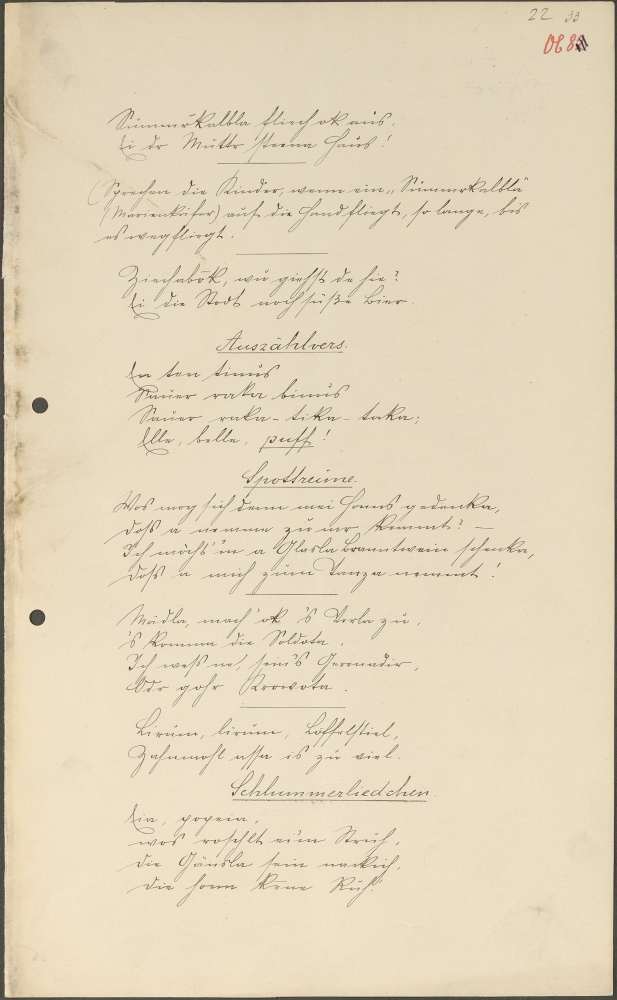 22 33
Summerkalbla fliech ok aus.
Ei dr Muttr steena Haus!
(Sprechen die Kinder, wenn ein „Summrkalbla"
(Marienkäfer) auf die Hand fliegt, so lange, bis
es wegfliegt.
Ziechabok, wu giehst de hie?
Ei die Stodt noch süße Bier.
Auszählvers.
En ten tinus
Sauer raka binus
Sauer raka-tika-taka;
Elle, belle, puff!
Spottreime.
Wos mog sich denn mei Honns gedenka,
Doß a nemme zu mr kemmt? —
Ich möcht' 'n a Glasla Branntwein schenka,
Doß a mich zum Tanza nemmt!
Mädla, mach' ok 's Terla zu,
's komma die Soldota.
Ich weß ne, sein's Grenadir,
Odr gohr Krowota.
Lirum, lirum, Löffelstiel,
Zahnmohl assa is zu viel.
Schlummerliedchen.
Eia, popeia,
wos roschlt ei'm Struh,
die Gänsla sein nackich,
die honn kene Ruh!